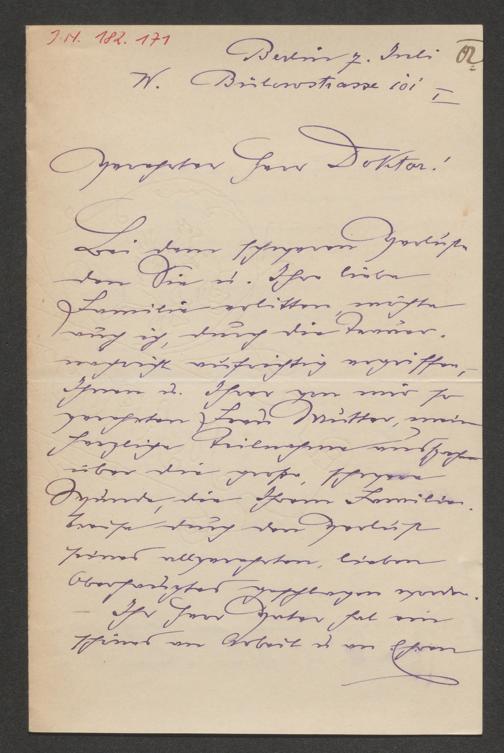 J.N. 182.171
02
Berlin 7. Juli
W. Bülowstrasse 101 I
Verehrter Herr Doktor!
Bei dem schweren Verluste
den Sie u. Ihre liebe
Familie erlitten, möchte
auch ich, durch die Trauer-
nachricht aufrichtig ergriffen,
Ihnen u. Ihrer von mir so
verehrten Frau Mutter, meine
herzliche Teilnahme aussprechen
über die große, schwere
Wunde, die Ihrem Familien-
kreise durch den Verlust
seines allverehrten, lieben
Oberhauptes geschlagen worden.
Ihr Herr Vater hat ein
schönes an Arbeit u. an Ehren